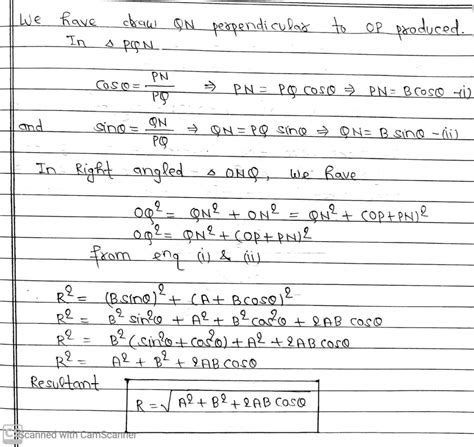 We have draw QN perpendicular to OP produced.
In △ PQN
cosθ = PN/PQ ⇒ PN = PQ cosθ ⇒ PN = B cosθ -(i)
and sinθ = QN/PQ ⇒ QN = PQ sinθ ⇒ QN = B sinθ -(ii)
In Right angled △ ONQ, we have
OQ² = QN² + ON² = QN² + (OP+PN)²
OQ² = QN² + (OP+PN)²
from enq (i) & (ii)
R² = (B sinθ)² + (A + B cosθ)²
R² = B² sin²θ + A² + B² cos²θ + 2AB cosθ
R² = B² (sin²θ + cos²θ) + A² + 2AB cosθ
R² = A² + B² + 2AB cosθ
Resultant
R = √A² + B² + 2AB cosθ
CS Scanned with CamScanner